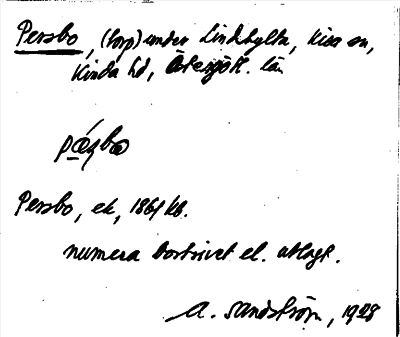 Persbo, (torp) under Lindhylta, Kisa sn,
Kinda hd, Östergötl. län
Persbo, ek, 1861 kb.
numera bortrivet el. avlagt.
A. Sandström, 1928